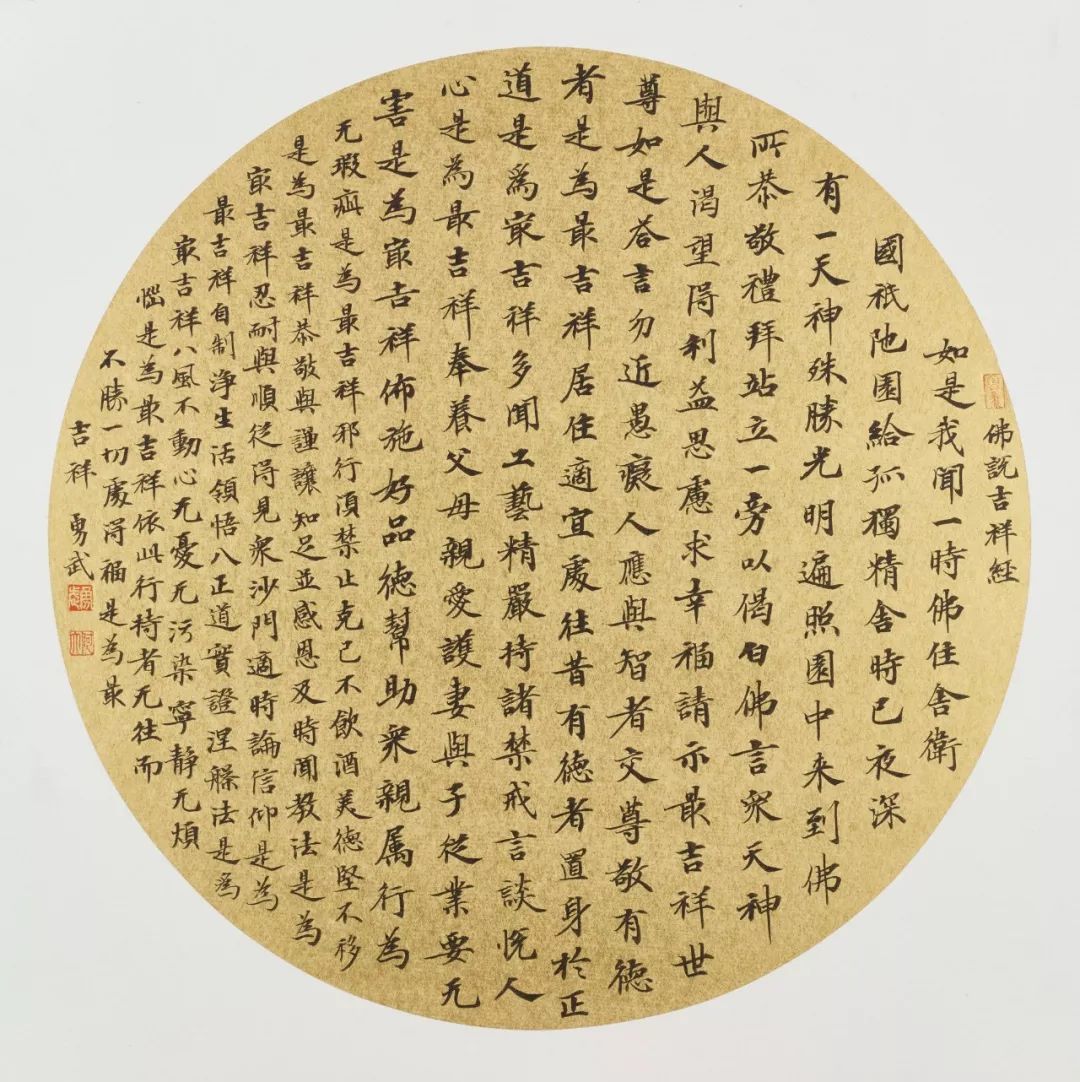 佛説吉祥経
如是我聞一時佛住舎衛
國祇陁園給孤獨精舎時已夜深
有一天神殊勝光明遍照園中来到佛
所恭敬禮拜站立一旁以偈白佛言衆天神
與人渴望得利益思慮求幸福請示最吉祥世
尊如是答言勿近愚癡人應與智者交尊敬有德
者是為最吉祥居住適宜處往昔有德者置身於正
道是為㝡吉祥多聞工藝精嚴持諸禁戒言談悦人
心是為最吉祥奉養父母親愛護妻與子從業要无
害是為㝡吉祥佈施好品德幫助衆親属行為
无瑕疵是為最吉祥邪行須禁止克己不飲酒美德堅不移
是為最吉祥恭敬與謹讓知足並感恩及時聞教法是為
㝡吉祥忍耐與順從得見衆沙門適時論信仰是為
最吉祥自制浄生活領悟八正道實證涅槃法是為
㝡吉祥八風不動心无憂无污染寧静无煩
惱是為最吉祥依此行持者无往而
不勝一切處得福是為最
吉祥 勇武